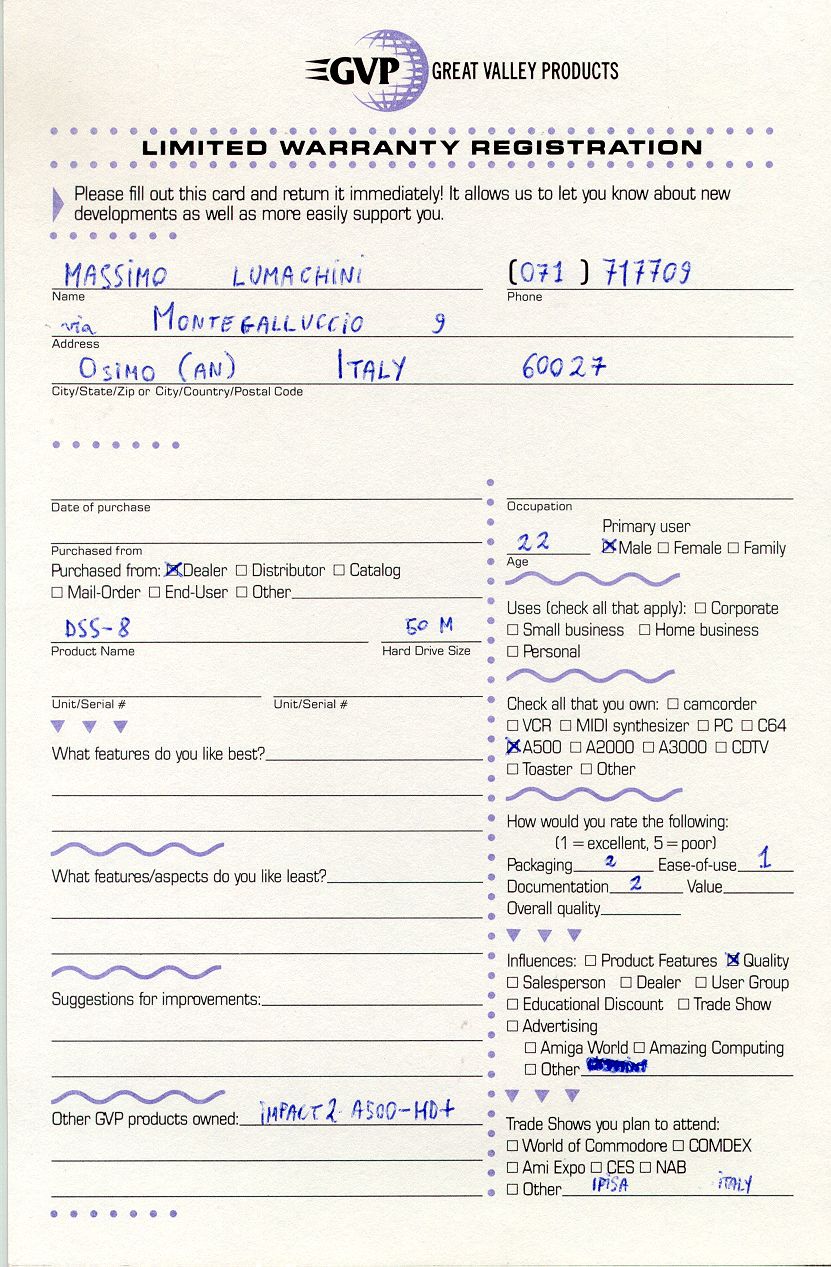 GVP GREAT VALLEY PRODUCTS
LIMITED WARRANTY REGISTRATION
Please fill out this card and return it immediately! It allows us to let you know about new
developments as well as more easily support you.
MASSIMO LUMACHINI (071) 717709
Name Phone
via MONTEGALLUCCIO 9
Address
OSIMO (AN) ITALY 60027
City/State/Zip or City/Country/Postal Code
Date of purchase
Purchased from
Purchased from: ☒ Dealer ☐ Distributor ☐ Catalog
☐ Mail-Order ☐ End-User ☐ Other
DSS-8 50 M
Product Name Hard Drive Size
Unit/Serial # Unit/Serial #
What features do you like best?
What features/aspects do you like least?
Suggestions for improvements:
Other GVP products owned: IMPACT 2 A500-HD+
Occupation
Primary user
22 ☒ Male ☐ Female ☐ Family
Age
Uses (check all that apply): ☐ Corporate
☐ Small business ☐ Home business
☐ Personal
Check all that you own: ☐ camcorder
☐ VCR ☐ MIDI synthesizer ☐ PC ☐ C64
☒ A500 ☐ A2000 ☐ A3000 ☐ CDTV
☐ Toaster ☐ Other
How would you rate the following:
(1 = excellent, 5 = poor)
Packaging 2 Ease-of-use 1
Documentation 2 Value
Overall quality
Influences: ☐ Product Features ☒ Quality
☐ Salesperson ☐ Dealer ☐ User Group
☐ Educational Discount ☐ Trade Show
☐ Advertising
☐ Amiga World ☐ Amazing Computing
☐ Other
Trade Shows you plan to attend:
☐ World of Commodore ☐ COMDEX
☐ Ami Expo ☐ CES ☐ NAB
☐ Other IPISA ITALY